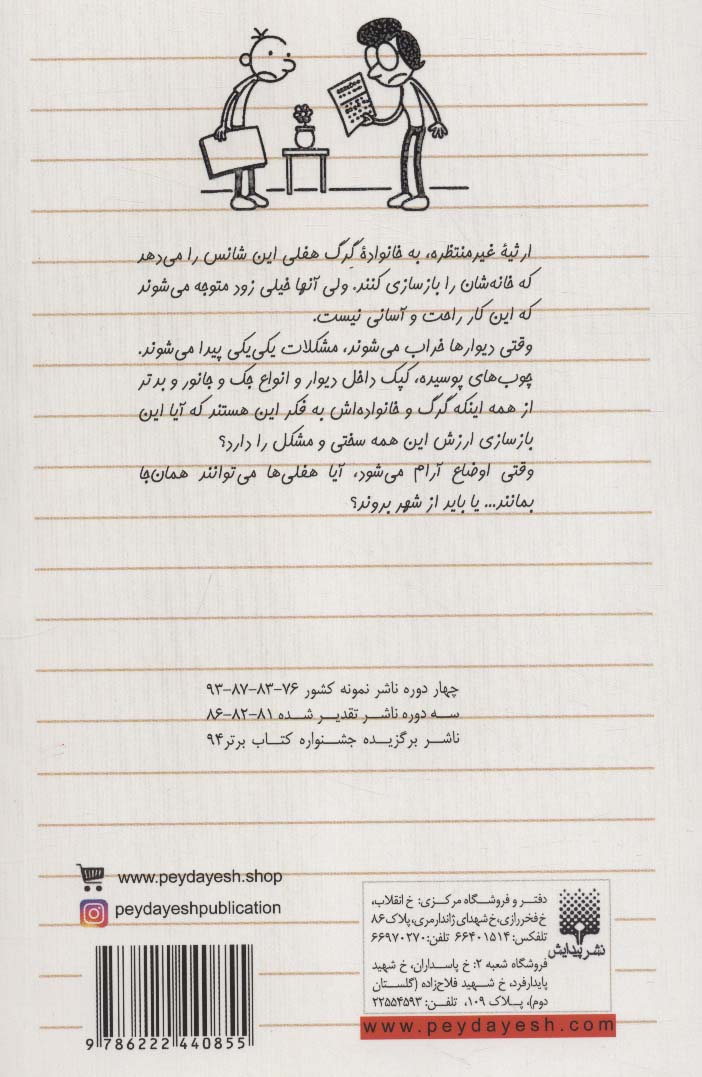 ارثیهٔ غیرمنتظره، به خانوادهٔ گرِگ هفلی این شانس را می‌دهد
که خانه‌شان را بازسازی کنند. ولی آنها خیلی زود متوجه می‌شوند
که این کار راحت و آسانی نیست.
وقتی دیوارها خراب می‌شوند، مشکلات یکی‌یکی پیدا می‌شوند.
چوب‌های پوسیده، کپک داخل دیوار و انواع جک و جانور و بدتر
از همه اینکه گرگ و خانواده‌اش به فکر این هستند که آیا این
بازسازی ارزش این همه سختی و مشکل را دارد؟
وقتی اوضاع آرام می‌شود، آیا هفلی‌ها می‌توانند همان‌جا
بمانند... یا باید از شهر بروند؟
چهار دوره ناشر نمونه کشور ۷۶-۸۳-۸۷-۹۳
سه دوره ناشر تقدیر شده ۸۱-۸۲-۸۶
ناشر برگزیده جشنواره کتاب برتر ۹۴
www.peydayesh.shop
peydayeshpublication
9 786222 440855
نشر پیدایش
دفتر و فروشگاه مرکزی: خ انقلاب،
خ فخررازی، خ شهدای ژاندارمری، پلاک ۸۶
تلفکس: ۶۶۴۰۱۵۱۴ تلفن: ۶۶۹۷۰۲۷۰
فروشگاه شعبه ۲: خ پاسداران، خ شهید
پایدارفرد، خ شهید فلاح‌زاده (گلستان
دوم)، پلاک ۱۰۹، تلفن: ۲۲۵۵۴۵۹۳
www.peydayesh.com